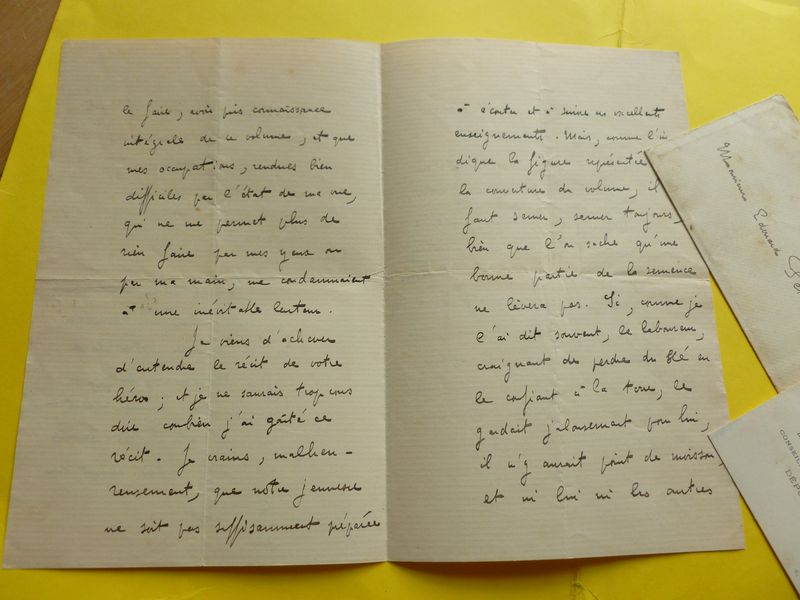 le faire, avoir pris connaissance
intégrale de ce volume, et que
mes occupations, rendues bien
difficiles par l'état de ma vue,
qui ne me permet plus de
rien faire par mes yeux ou
par ma main, me condamnaient
à une inévitable lenteur.
Je viens d'achever
d'entendre le récit de votre
héros ; et je ne saurais trop vous
dire combien j'ai goûté ce
récit. Je crains, malheu-
reusement, que notre jeunesse
ne soit pas suffisamment préparée
à écouter et à suivre ces excellents
enseignements. Mais, comme l'in
dique la figure représentée
la couverture du volume, il
faut semer, semer toujours,
bien que l'on sache qu'une
bonne partie de la semence
ne lèvera pas. Si, comme je
l'ai dit souvent, le laboureur,
craignant de perdre du blé en
le confiant à la terre, le
gardait jalousement pour lui,
il n'y aurait point de moisson,
et ni lui ni les autres
Monsieur Edouard
CONSEIL
DÉP